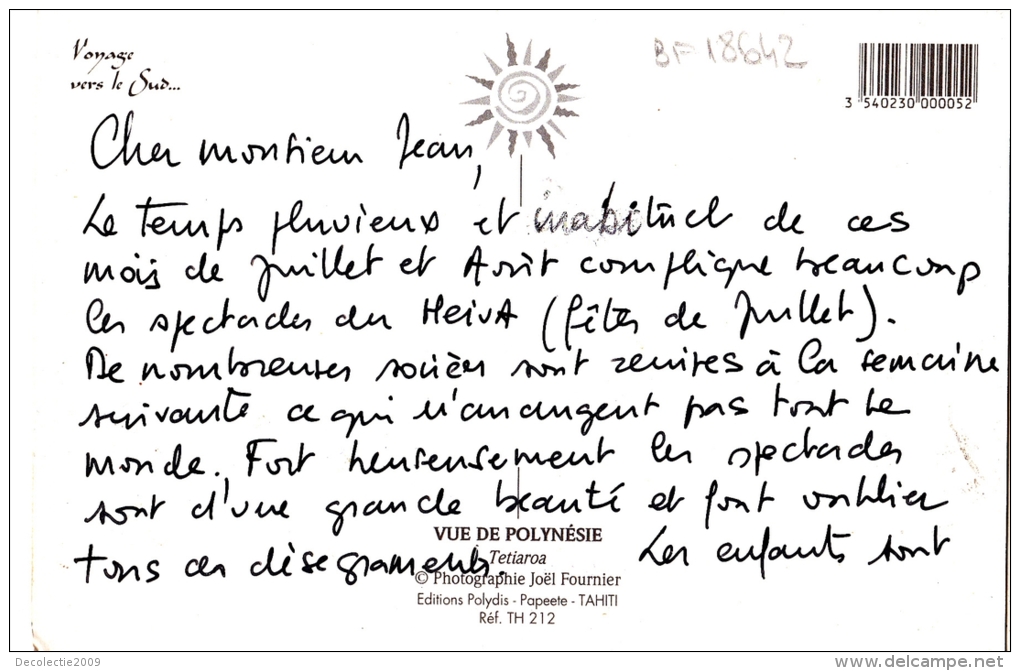 Voyage
vers le Sud...
BF 18642
3 540230 000052
Cher monsieur Jean,
Le temps pluvieux et inabituel de ces
mois de Juillet et Août complique beaucoup
les spectacles du HEIVA (fêtes de Juillet).
De nombreuses soirées sont remises à la semaine
suivante ce qui n'arrangent pas tout le
monde. Fort heureusement les spectacles
sont d'une grande beauté et font oublier
tous ces désagréments. Les enfants sont
VUE DE POLYNÉSIE
Tetiaroa
© Photographie Joël Fournier
Editions Polydis - Papeete - TAHITI
Réf. TH 212
Decolectie2009
www.delcampe.net